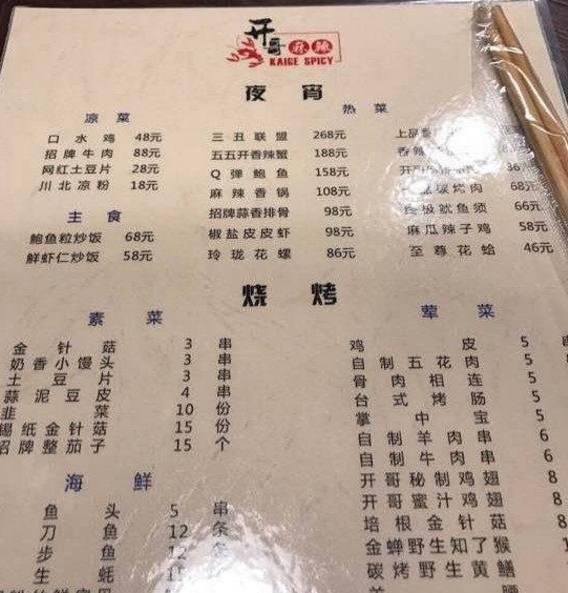 开哥麻辣
KAIGE SPICY
夜宵
凉菜
口水鸡 48元
招牌牛肉 88元
网红土豆片 28元
川北凉粉 18元
主食
鲍鱼粒炒饭 68元
鲜虾仁炒饭 58元
热菜
三丑联盟 268元
五五开香辣蟹 188元
Q弹鲍鱼 158元
麻辣香锅 108元
招牌蒜香排骨 98元
椒盐皮皮虾 98元
玲珑花螺 86元
上品
香辣
开
36
炭烤肉 68元
极鱿鱼须 66元
麻瓜辣子鸡 58元
至尊花蛤 46元
烧烤
素菜
金针菇 3 串
奶香小馒头 3 串
土豆片 3 串
蒜泥豆皮 4 串
韭菜 10 份
锡纸金针菇 15 份
招牌整茄子 15 个
海鲜
鱼头 5 串
刀鱼 12 条
步鱼 12
生蚝
荤菜
鸡皮 5
自制五花肉 5
骨肉相连 5
台式烤肠 5
掌中宝 5
自制羊肉串 6
自制牛肉串 6
开哥秘制鸡翅 8
开哥蜜汁鸡翅 8
培根金针菇 8
金蝉野生知了猴
碳烤野生黄鳝